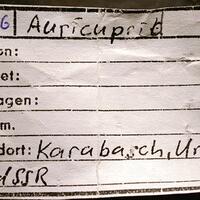 6 Auricuprid
on:
et:
agen:
m.
dort: Karabasch, Ur
USSR